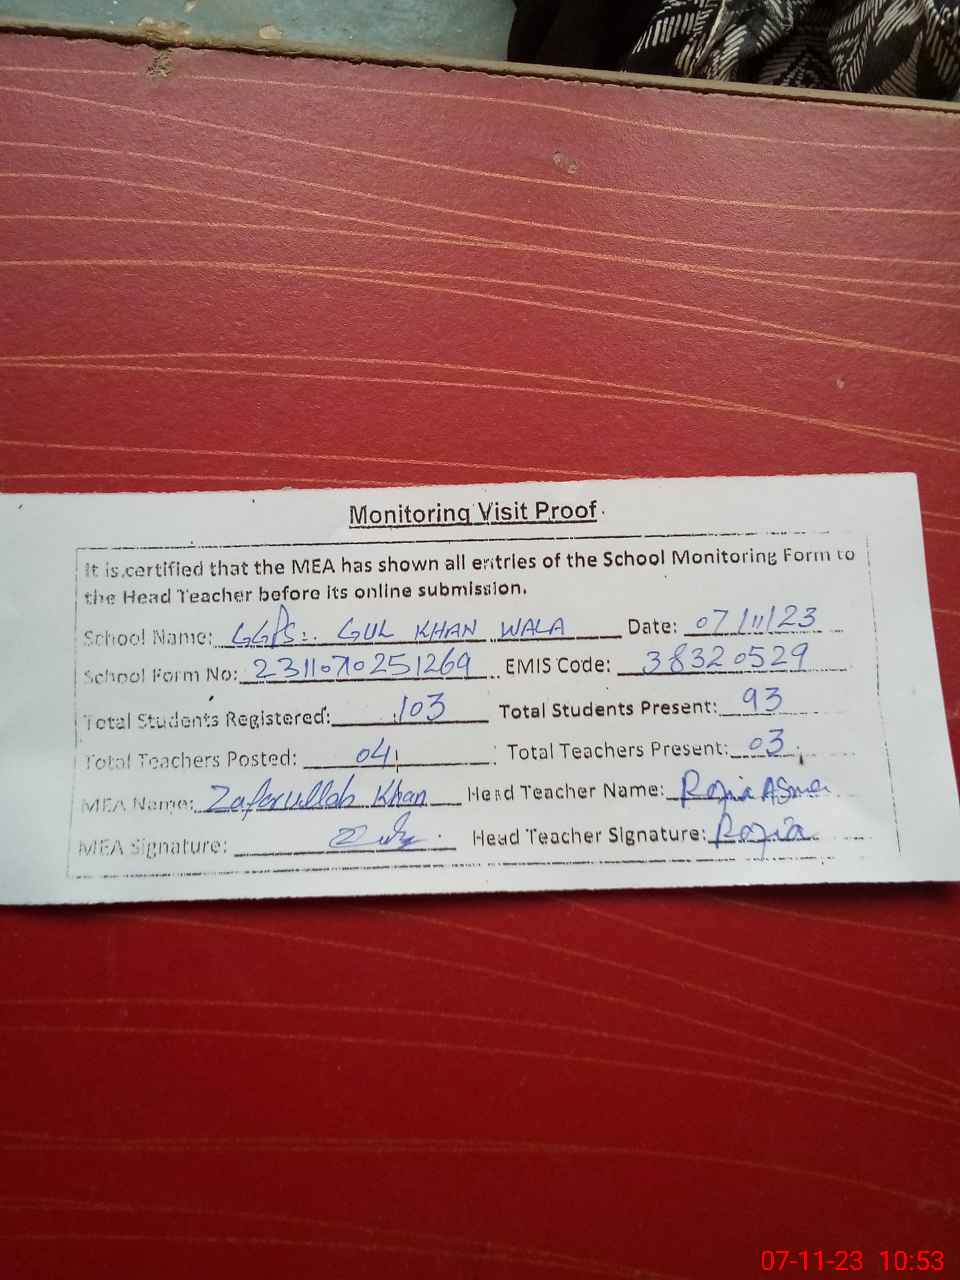 Monitoring Visit Proof
It is certified that the MEA has shown all entries of the School Monitoring Form to
the Head Teacher before its online submission.
School Name: GGPS. GUL KHAN WALA Date: 07/11/23
School Form No: 2311070251269 EMIS Code: 38320529
Total Students Registered: 103 Total Students Present: 93
Total Teachers Posted: 04 Total Teachers Present: 03
MEA Name: Zafarullah Khan Head Teacher Name: Razia Asma
MEA Signature: Head Teacher Signature: Razia
07-11-23 10:53